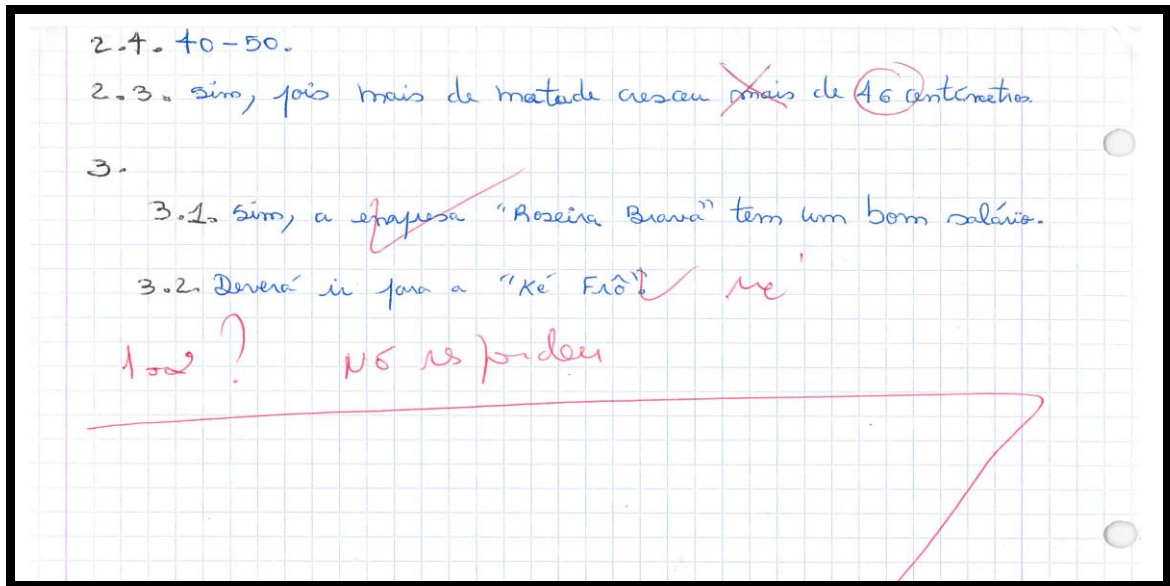 2.4. 40-50.
2.3. sim, pois mais de matade cresceu mais de 46 centímetros.
3.
3.1. Sim, a empresa "Roseira Brava" tem um bom salário.
3.2. Deverá ir para a "Ké Frô".
1.2 ? Nõ respondeu